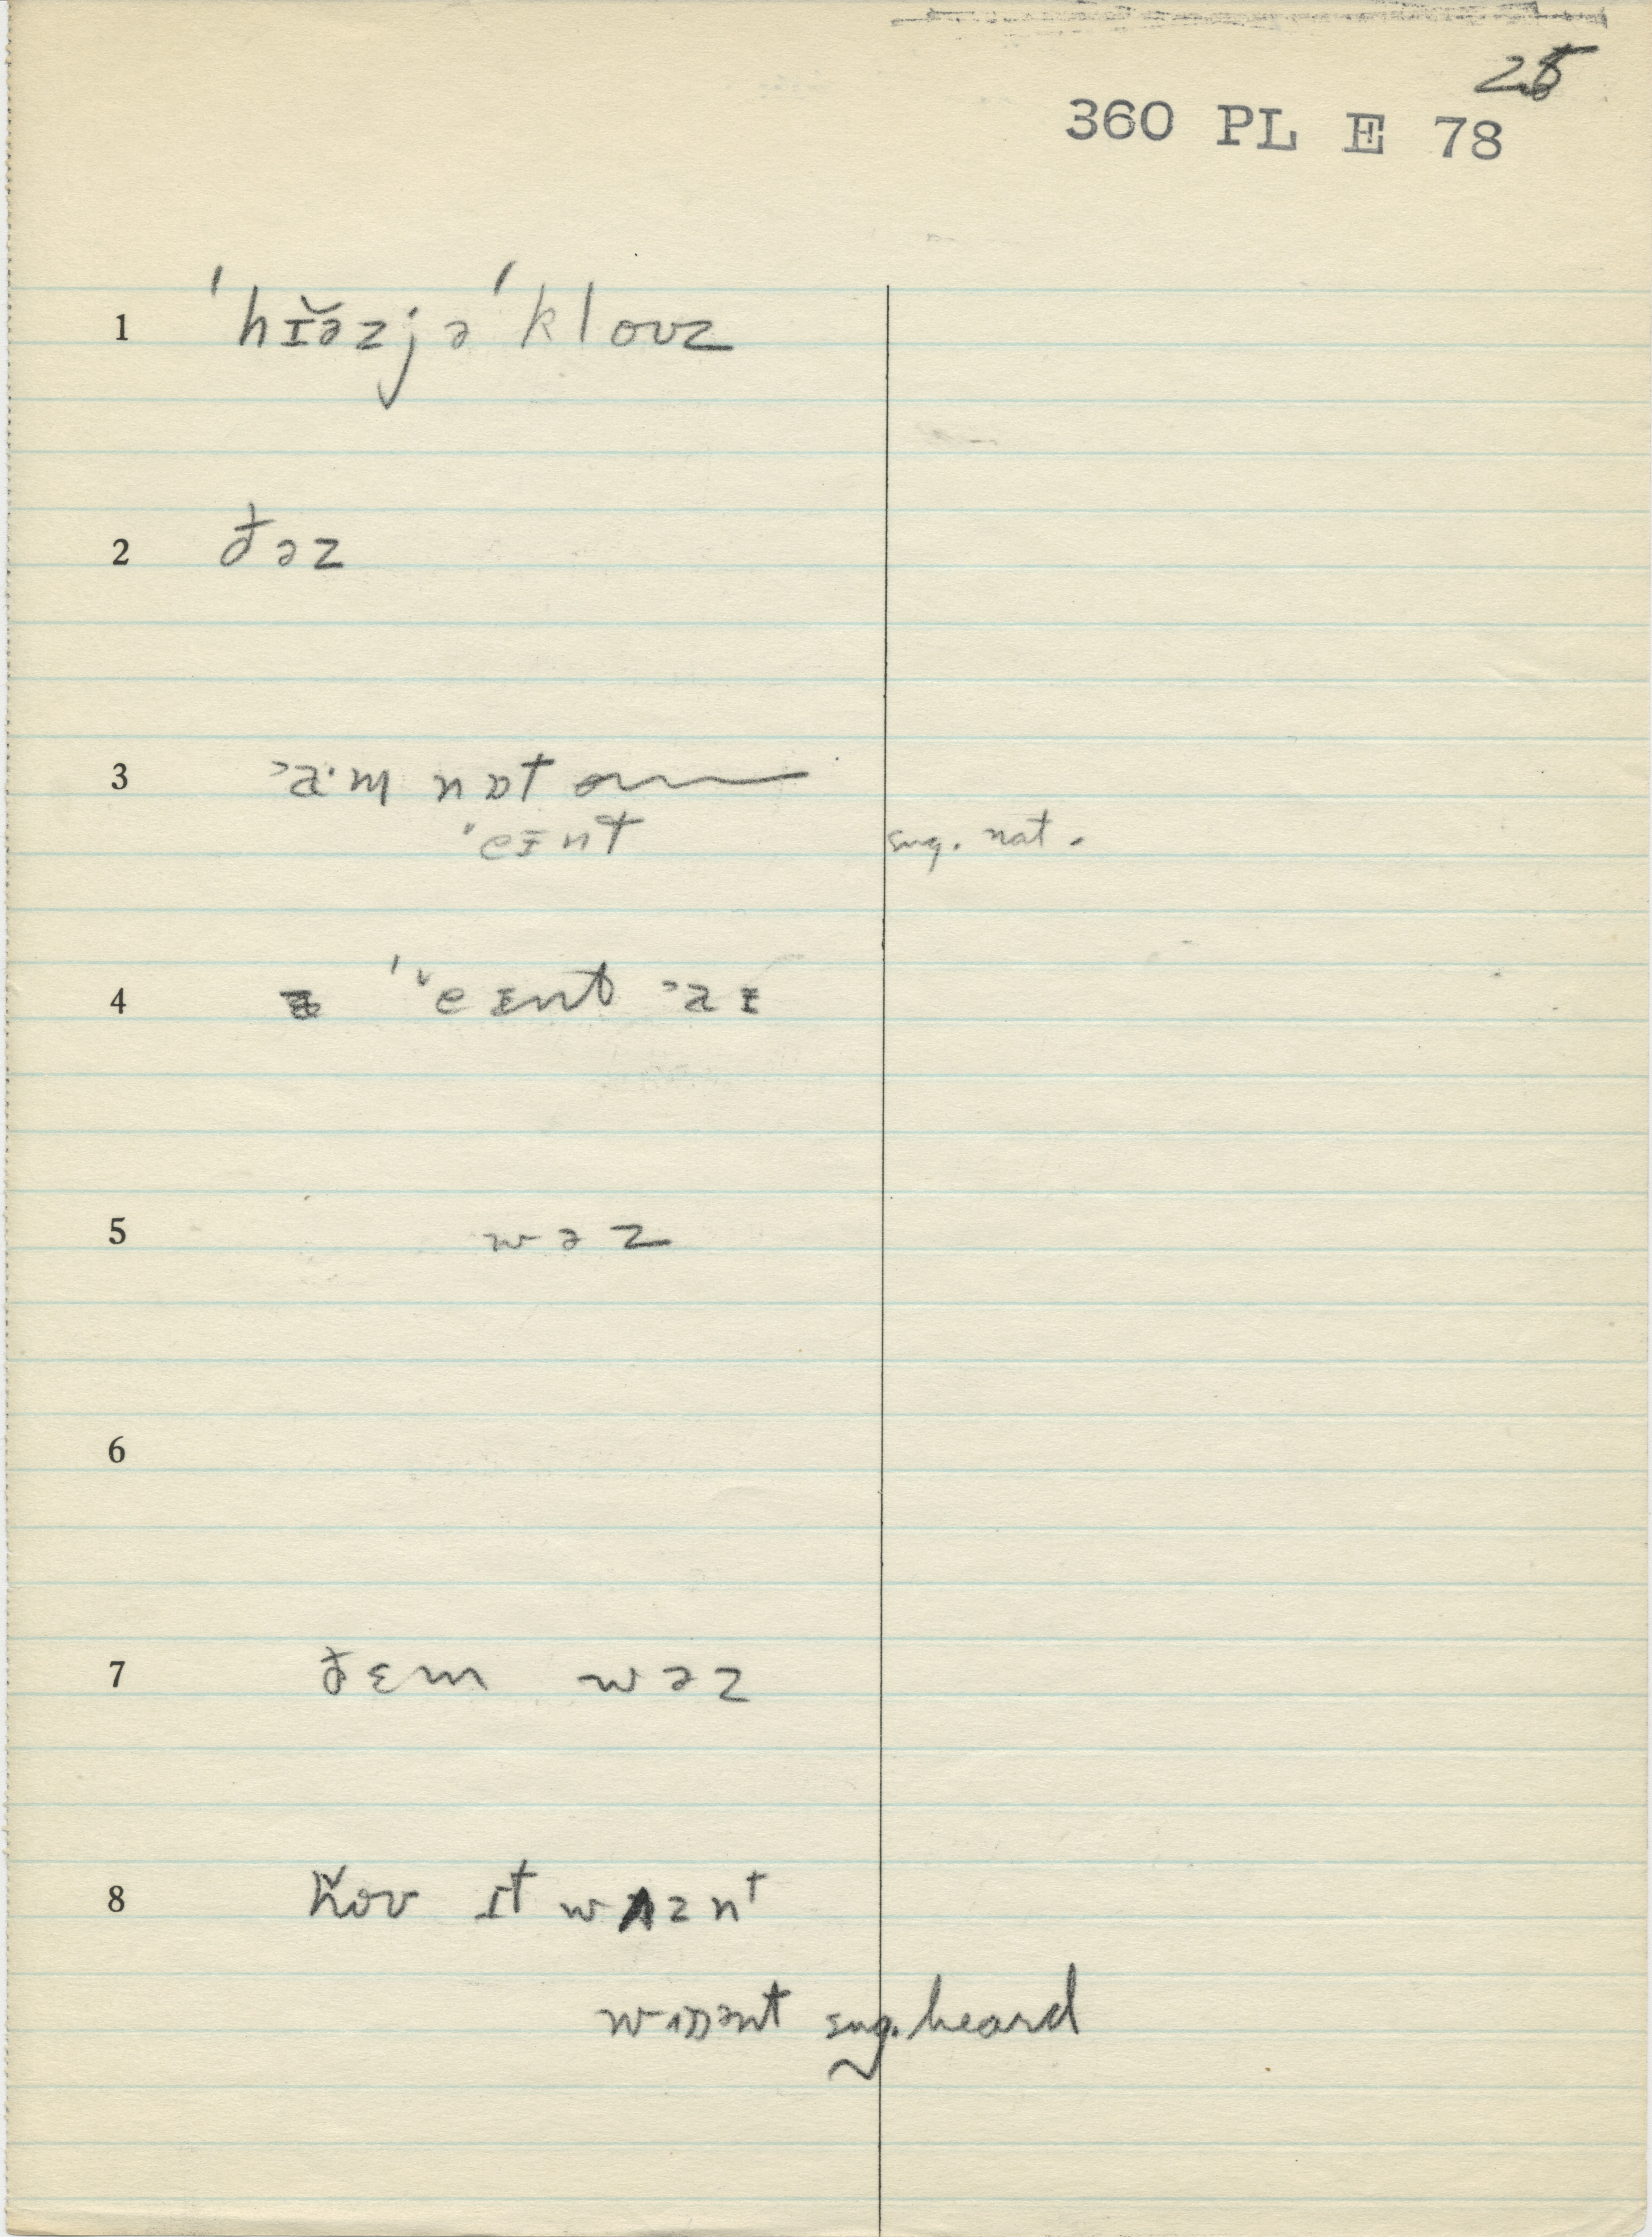 25
360 PL E 78
1 ˈhɪ̆əzjəˈkloʊz
2 ðəz
3 ˃a·m nɒt
ˈeɪnt sug. nat.
4 ˈ˅eɪnt ˃aɪ
5 wəz
6
7 ðɛm wəz
8 it wʌznt
sug. heard